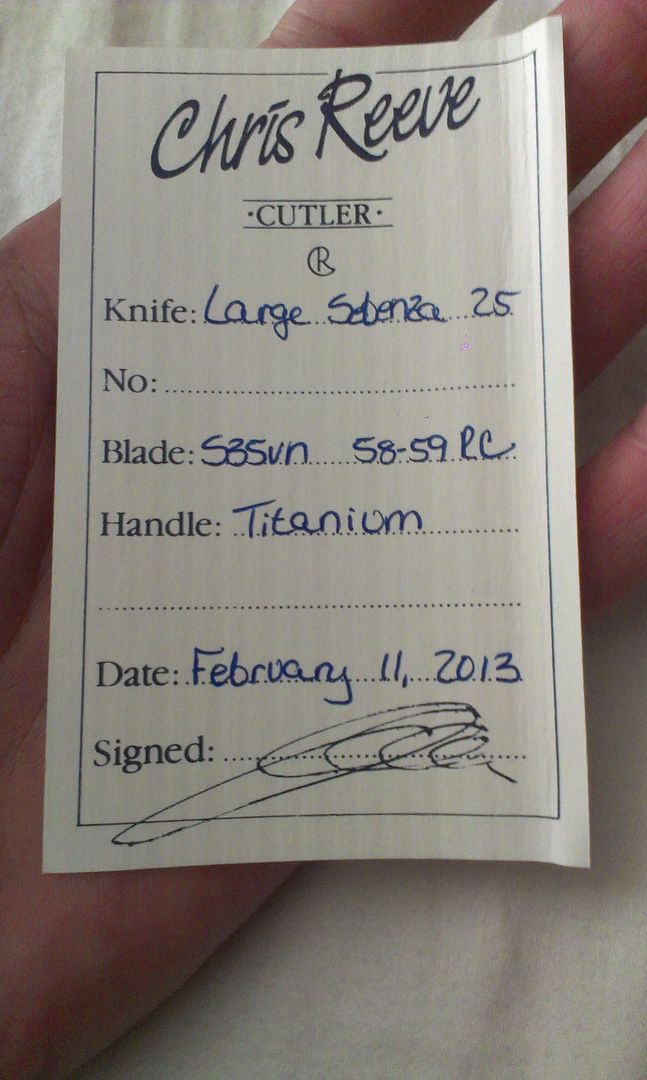 Chris Reeve
·CUTLER·
R
Knife: Large Sebenza 25
No:
Blade: S35vn 58-59 RC
Handle: Titanium
Date: February 11, 2013
Signed: